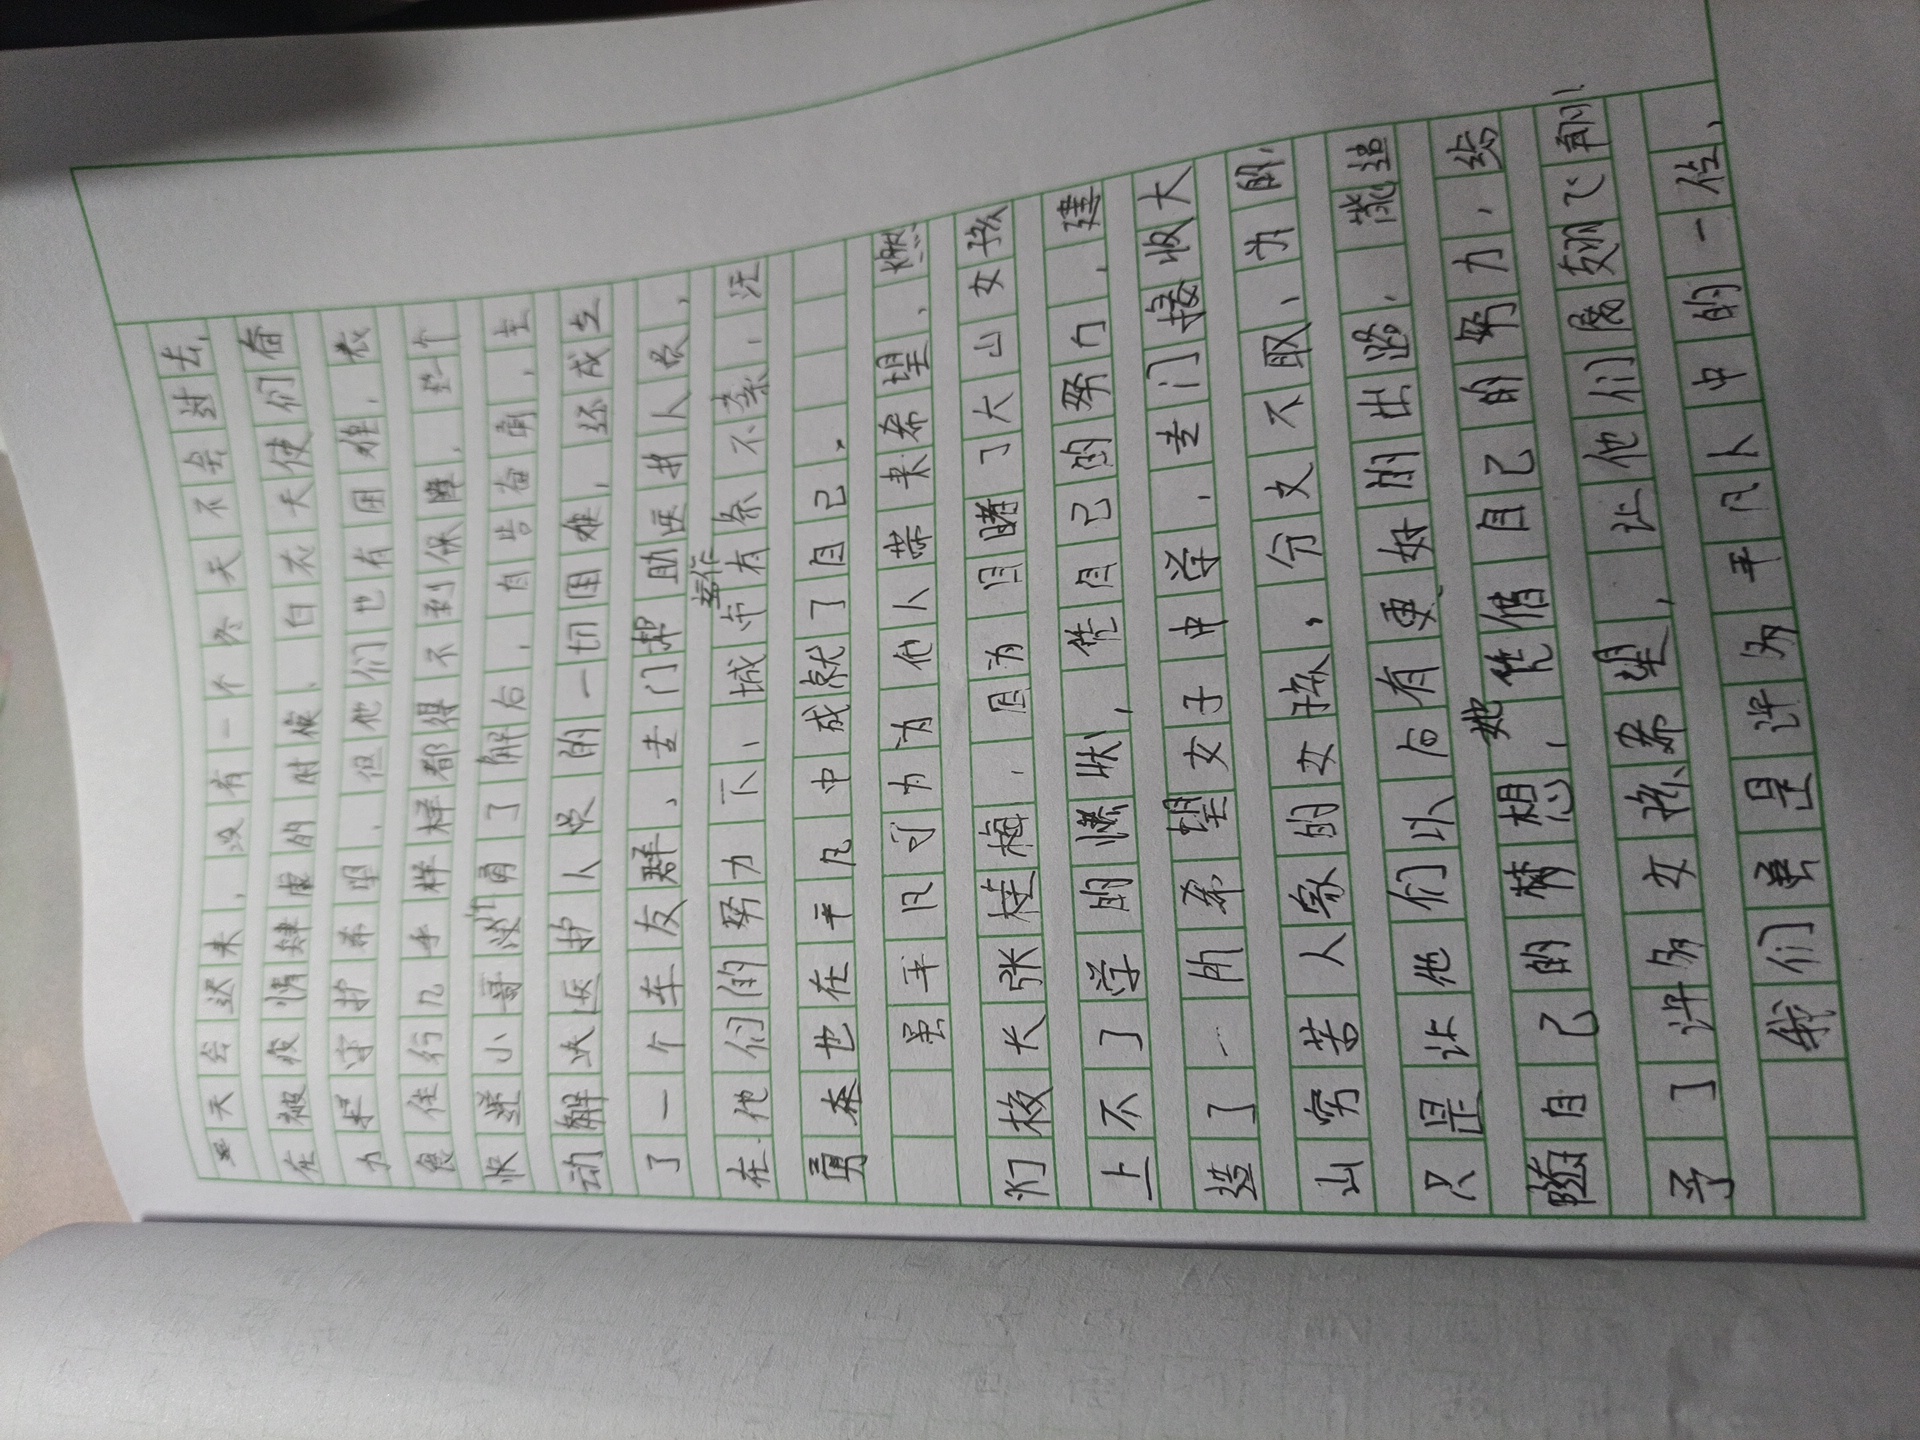 春天会迟来,没有一个冬天不会过去,
在被疫情肆虐的时候、白衣天使们奋
力来守护希望、但他们也有困难,衣
食住行几乎样样都得不到保障,
快递小哥汪勇了解后,自告奋勇,主
动解决医护人员的一切困难,还成立
了一个车友群、专门帮助医护人员,
在他们的努力下,城市运作有条不紊,汪
勇本也在平凡中成就了自己。
虽平凡可为他人带来希望、燃
灯校长张桂梅,因为目睹了大山女孩
上不了学的惨状,凭自己的努力,建
造了一所希望女子中学,专门接收大
山穷苦人家的女孩,分文不取、为的,
只是让他们以后有更好的出路,
自己的梦想,她凭借自己的努力,给
予了许多女孩希望,让他们
我们虽是许多平凡人中的一位,